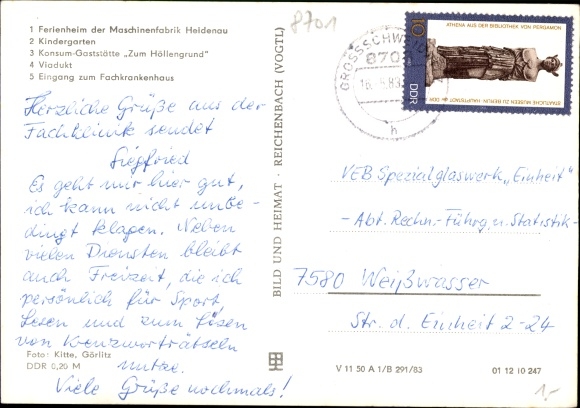 1 Ferienheim der Maschinenfabrik Heidenau
2 Kindergarten
3 Konsum-Gaststätte „Zum Höllengrund"
4 Viadukt
5 Eingang zum Fachkrankenhaus
Herzliche Grüße aus der
Fachklinik sendet
Siegfried
Es geht mir hier gut,
ich kann nicht unbe-
dingt klagen. Neben
vielen Diensten bleibt
auch Freizeit, die ich
persönlich für Sport,
Lesen und zum Lösen
von Kreuzworträtseln
nutze.
Viele Grüße nochmals!
Foto: Kitte, Görlitz
DDR 0,20 M
BILD UND HEIMAT · REICHENBACH (VOGTL)
8701
GROSSSCHWEIDNITZ
h
10
DDR
ATHENA AUS DER BIBLIOTHEK VON PERGAMON
STAATLICHE MUSEEN ZU BERLIN, HAUPTSTADT der DDR
VEB Spezialglaswerk „Einheit"
- Abt. Rechn.-Führg. u. Statistik -
7580 Weißwasser
Str. d. Einheit 2-24
V 11 50 A 1/B 291/83
01 12 10 247
1,-